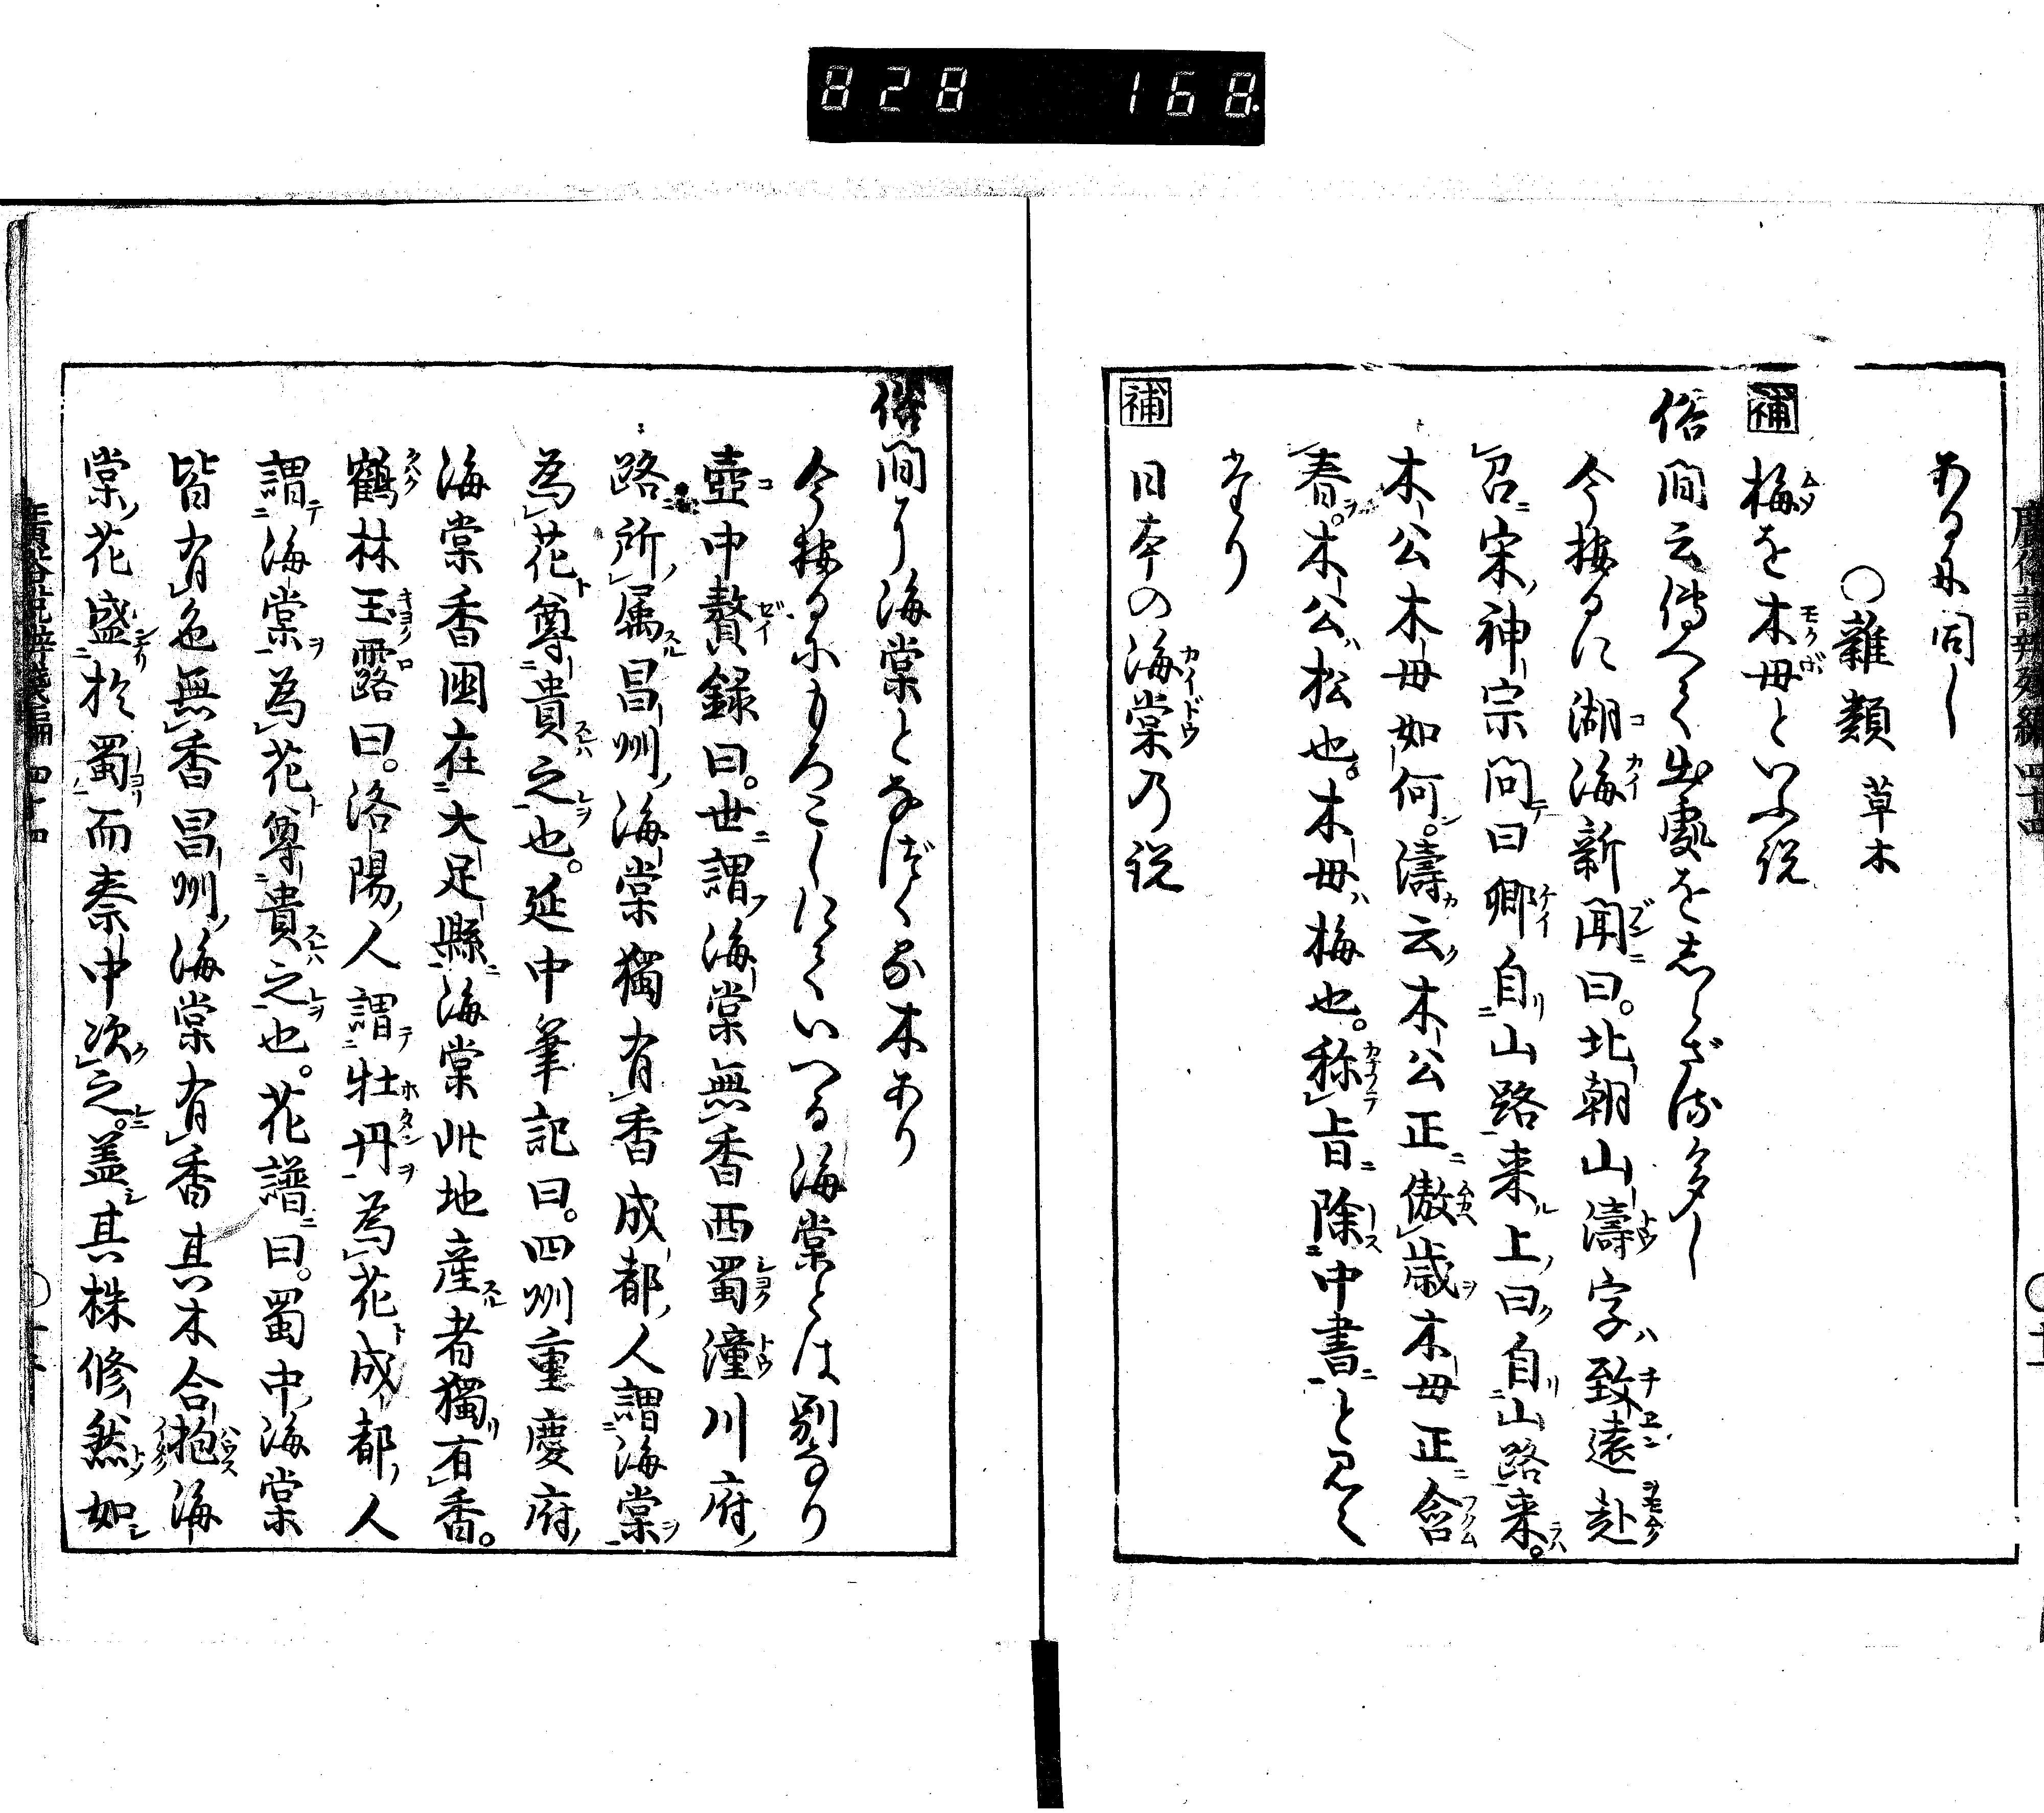 828 168
ある由同し
○雑類 草木
補 梅を木母といふ説
俗間云傳へて出處をしらざる多し
今按るに湖海新聞曰。北朝山濤字ハ致遠赴
召宋神宗問曰卿自山路来上曰自山路来。
木公木母如何。濤云木公正傲歳木母正含
春。木公松也。木母梅也。称旨除中書と見え
たり
補 日本の海棠乃説
俗間に海棠となづくる木あり
今按るにもろこしにていへる海棠とは別なり
壺中贅録曰。世謂海棠無香西蜀潼川府
路所属昌州海棠獨有香成都人謂海棠
為花尊貴之也。延中筆記曰。四州重慶府
海棠香國在大足縣海棠此地産者獨有香。
鶴林玉露曰。洛陽人謂牡丹為花成都人
謂海棠為花尊貴之也。花譜曰。蜀中海棠
皆有色無香昌州海棠有香其木合抱海
棠花盛於蜀而秦中次之。盖其株修然如